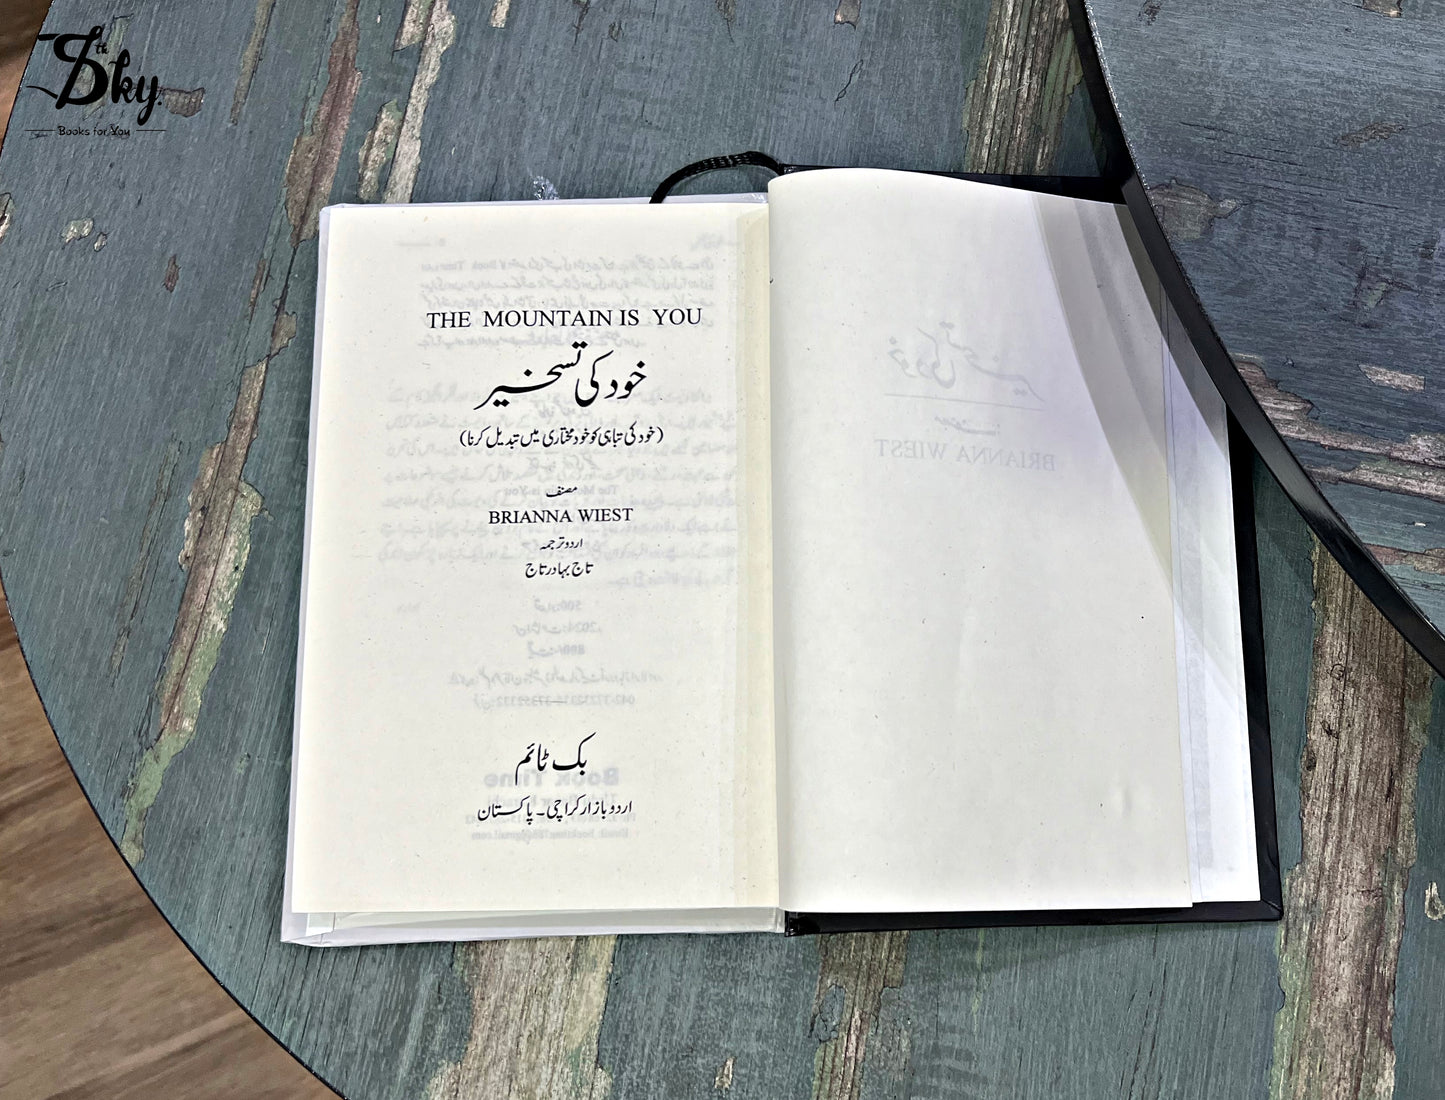 7th Sky.
Books for You
THE MOUNTAIN IS YOU
خود کی تسخیر
(خود کی تباہی کو خود مختاری میں تبدیل کرنا)
مصنف
BRIANNA WIEST
اردو ترجمہ
تاج بہادر تاج
بک ٹائم
اردو بازار کراچی۔ پاکستان
خود کی تسخیر
مصنف
BRIANNA WIEST